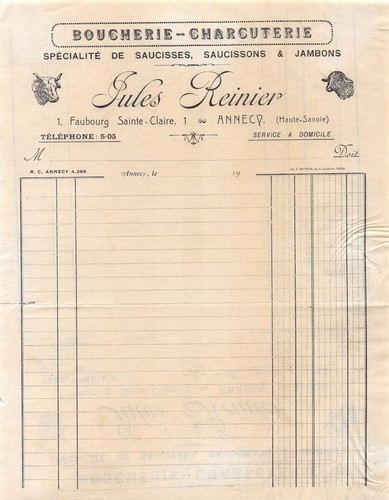 BOUCHERIE - CHARCUTERIE
SPÉCIALITÉ DE SAUCISSES, SAUCISSONS & JAMBONS
Jules Reinier
1, Faubourg Sainte-Claire, 1 ANNECY, (Haute-Savoie)
TÉLÉPHONE: 5-03 SERVICE A DOMICILE
M Doit
R. C. ANNECY 4.269 Annecy, le 19